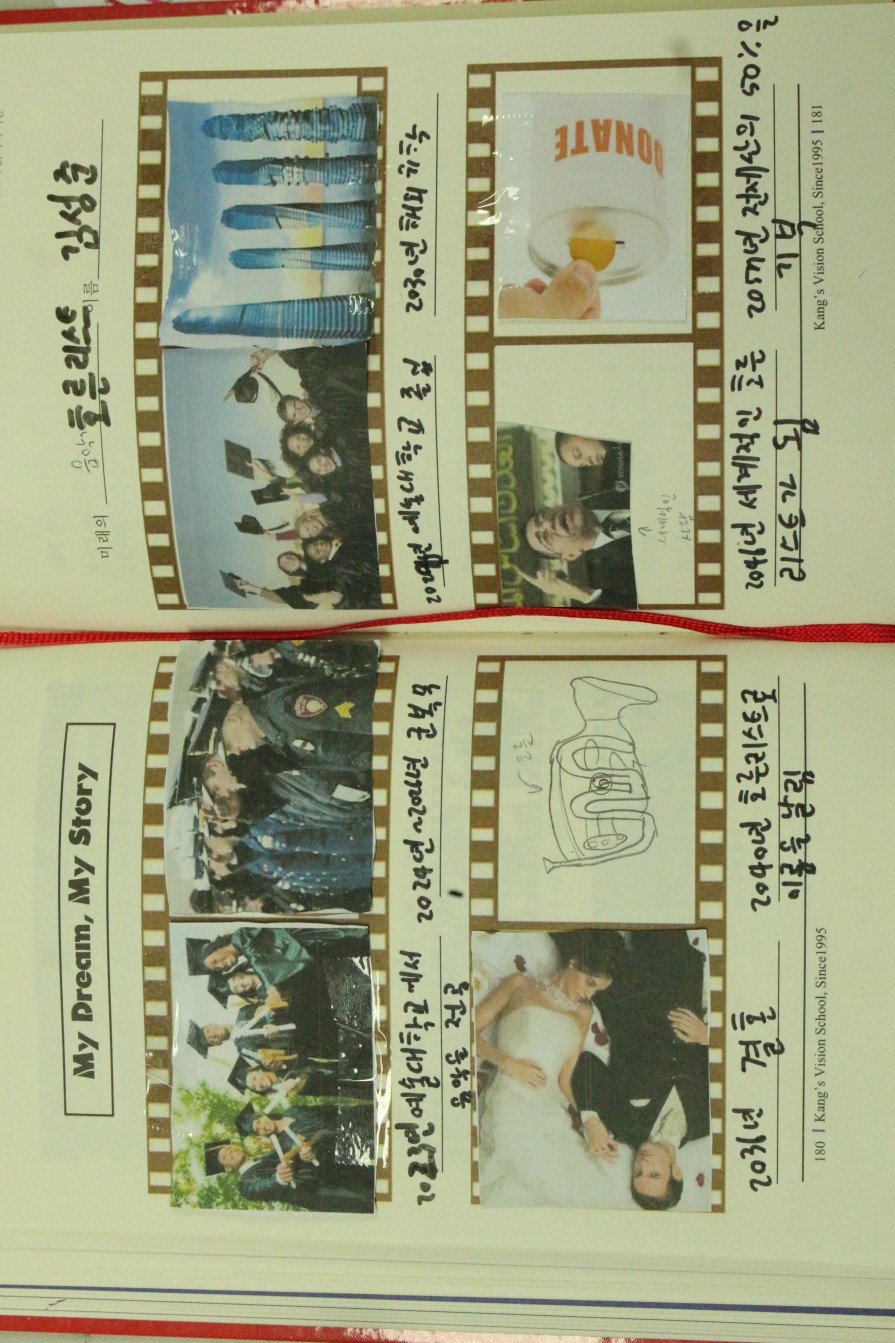 My Dream, My Story
2023년 예술대학교 에서
음악을 전공
2024년 ~2026년 군복무
년 결혼
호른
2040년 호른리스트로
이름을 날림
180 | Kang's Vision School, Since1995
미래의 호른리스트 이름 김성준
예술대학교 졸업
2030년 해외
세계적인
사람
DONATE
2041년 세계적인 호른
리스트가 됨
전재산의 50%을
기부
Kang's Vision School, Since1995 | 181